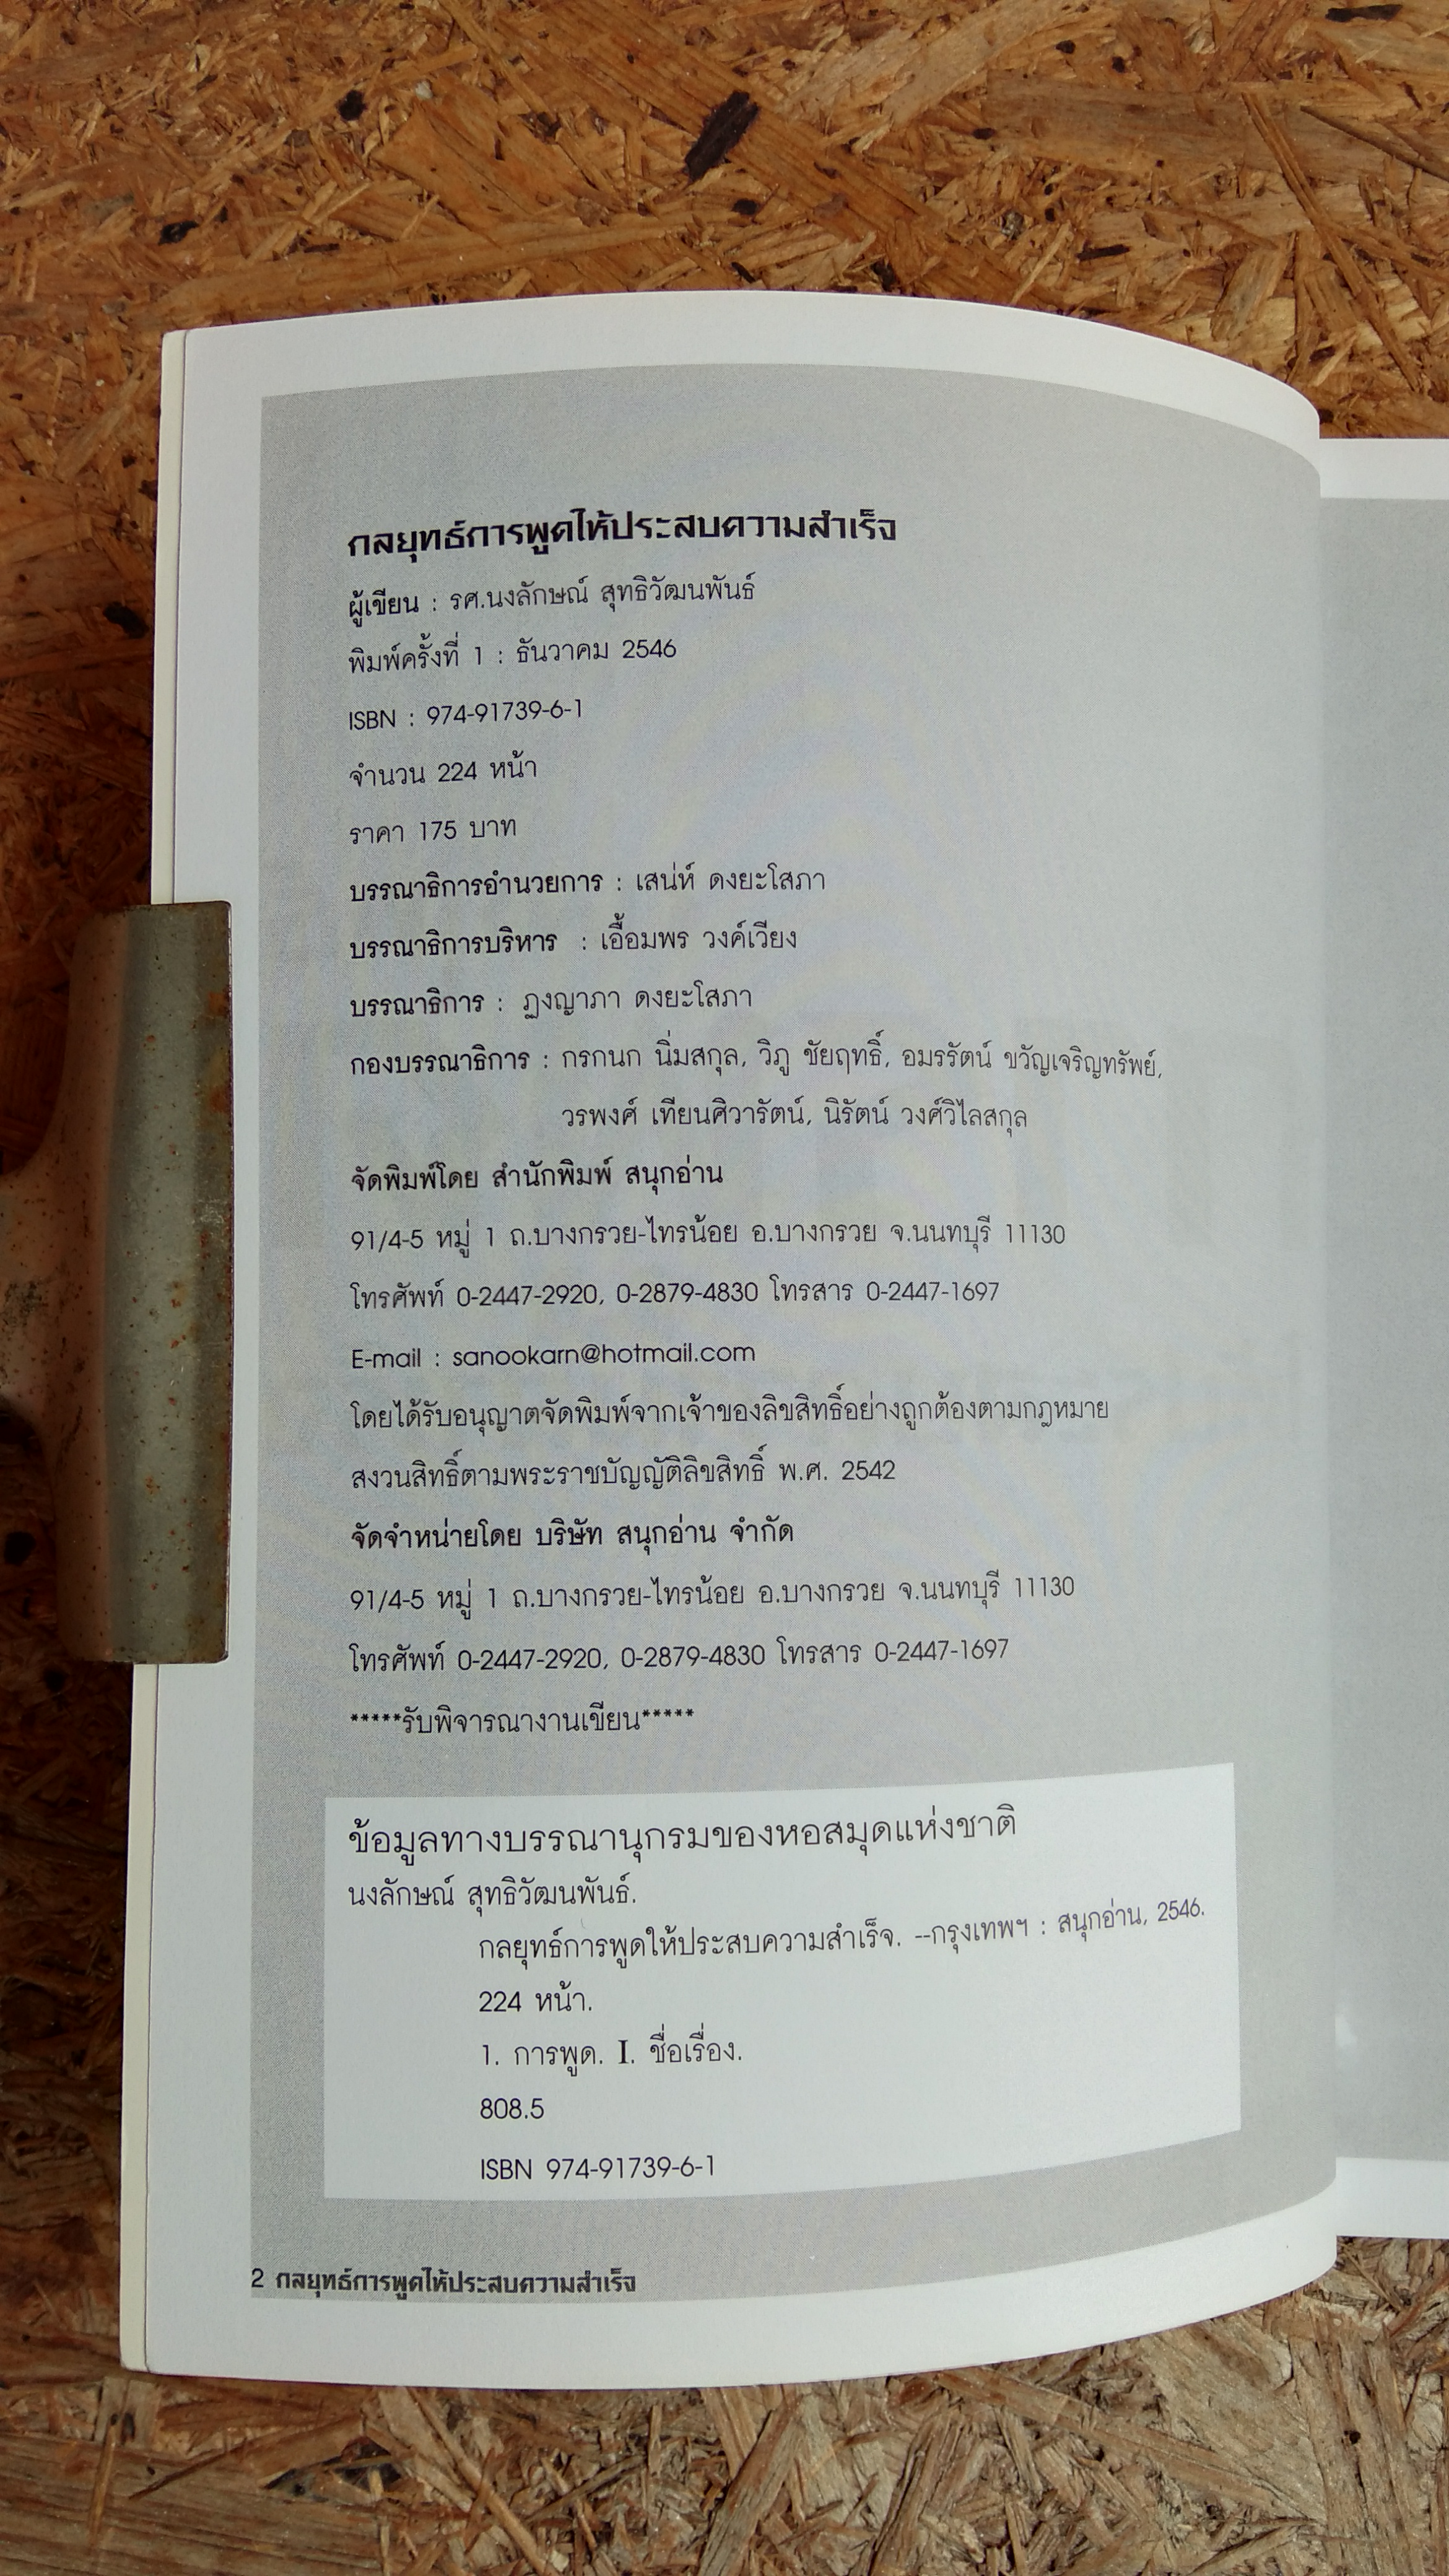 กลยุทธ์การพูดให้ประสบความสำเร็จ
ผู้เขียน : รศ.นงลักษณ์ สุทธิวัฒนพันธ์
พิมพ์ครั้งที่ 1 : ธันวาคม 2546
ISBN : 974-91739-6-1
จำนวน 224 หน้า
ราคา 175 บาท
บรรณาธิการอำนวยการ : เสน่ห์ ดงยะโสภา
บรรณาธิการบริหาร : เอื้อมพร วงค์เวียง
บรรณาธิการ : ฎงญาภา ดงยะโสภา
กองบรรณาธิการ : กรกนก นิ่มสกุล, วิภู ชัยฤทธิ์, อมรรัตน์ ขวัญเจริญทรัพย์,
วรพงศ์ เทียนศิวารัตน์, นิรัตน์ วงศ์วิไลสกุล
จัดพิมพ์โดย สำนักพิมพ์ สนุกอ่าน
91/4-5 หมู่ 1 ถ.บางกรวย-ไทรน้อย อ.บางกรวย จ.นนทบุรี 11130
โทรศัพท์ 0-2447-2920, 0-2879-4830 โทรสาร 0-2447-1697
E-mail : sanookarn@hotmail.com
โดยได้รับอนุญาตจัดพิมพ์จากเจ้าของลิขสิทธิ์อย่างถูกต้องตามกฎหมาย
สงวนสิทธิ์ตามพระราชบัญญัติลิขสิทธิ์ พ.ศ. 2542
จัดจำหน่ายโดย บริษัท สนุกอ่าน จำกัด
91/4-5 หมู่ 1 ถ.บางกรวย-ไทรน้อย อ.บางกรวย จ.นนทบุรี 11130
โทรศัพท์ 0-2447-2920, 0-2879-4830 โทรสาร 0-2447-1697
*****รับพิจารณางานเขียน*****
ข้อมูลทางบรรณานุกรมของหอสมุดแห่งชาติ
นงลักษณ์ สุทธิวัฒนพันธ์.
กลยุทธ์การพูดให้ประสบความสำเร็จ. --กรุงเทพฯ : สนุกอ่าน, 2546.
224 หน้า.
1. การพูด. I. ชื่อเรื่อง.
808.5
ISBN 974-91739-6-1
2 กลยุทธ์การพูดให้ประสบความสำเร็จ